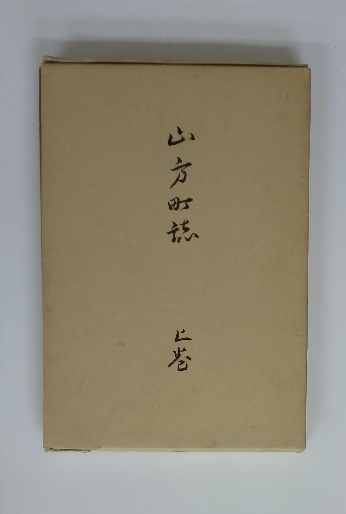 山方町誌
上巻